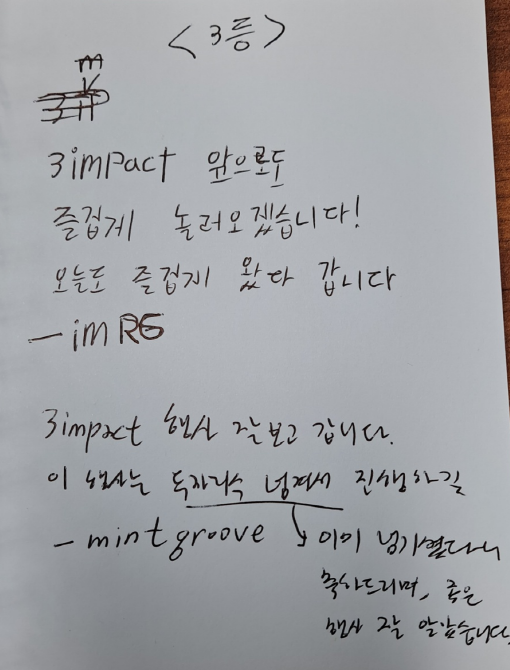 <3등>
m
3imPact 앞으로도
즐겁게 놀러오겠습니다!
오늘도 즐겁게 왔다 갑니다
- imRG
3impact 행사 잘보고 갑니다.
이 행사는 두자리수 넘겨서 진행하길
- mintgroove
이미 넘기셨다니
축하드리며, 좋은
행사 잘